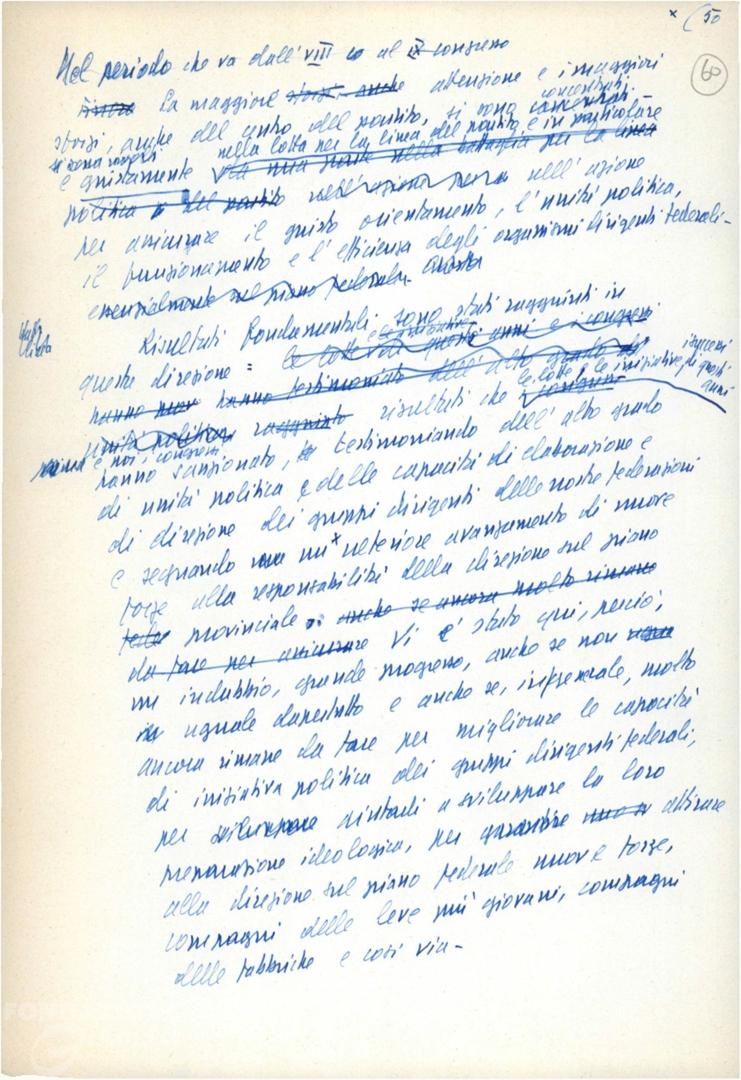 x (50
60
Nel periodo che va dall'VIII al IX congresso
la maggiore attensione e i maggiori
sforsi, anche del centro del partito, si sono concentrati
si sono rivolti nella lotta per la linea del partito, e in particolare
e giustamente
nell'azione
per assicurare il giusto orientamento, l'unità politica,
il funsionamento e l'efficiensa degli organismi dirigenti federali-
Risultati fondamentali sono stati raggiunti in
questa diresione: i successi
risultati che le lotte e le iniziative di questi
anni
e poi, i congressi
hanno sansionato, testimoniando dell'alto grado
di unità politica e delle capacità di elaborasione e
di diresione dei gruppi dirigenti delle nostre federasioni
e segnando un ulteriore avansamento di nuove
forse alla responsabilità della diresione sul piano
provinciale. anche se ancora molto rimane
da fare per assicurare Vi è stato qui, perciò,
un indubbio, grande progresso, anche se non
uguale dapertutto e anche se, in generale, molto
ancora rimane da fare per migliorare le capacità
di inisiativa politica dei gruppi dirigenti federali,
per aiutarli a sviluppare la loro
preparasione ideologica, per attirare
alla diresione sul piano federale nuove forse,
compagni delle leve più giovani, compagni
delle fabbriche e così via-